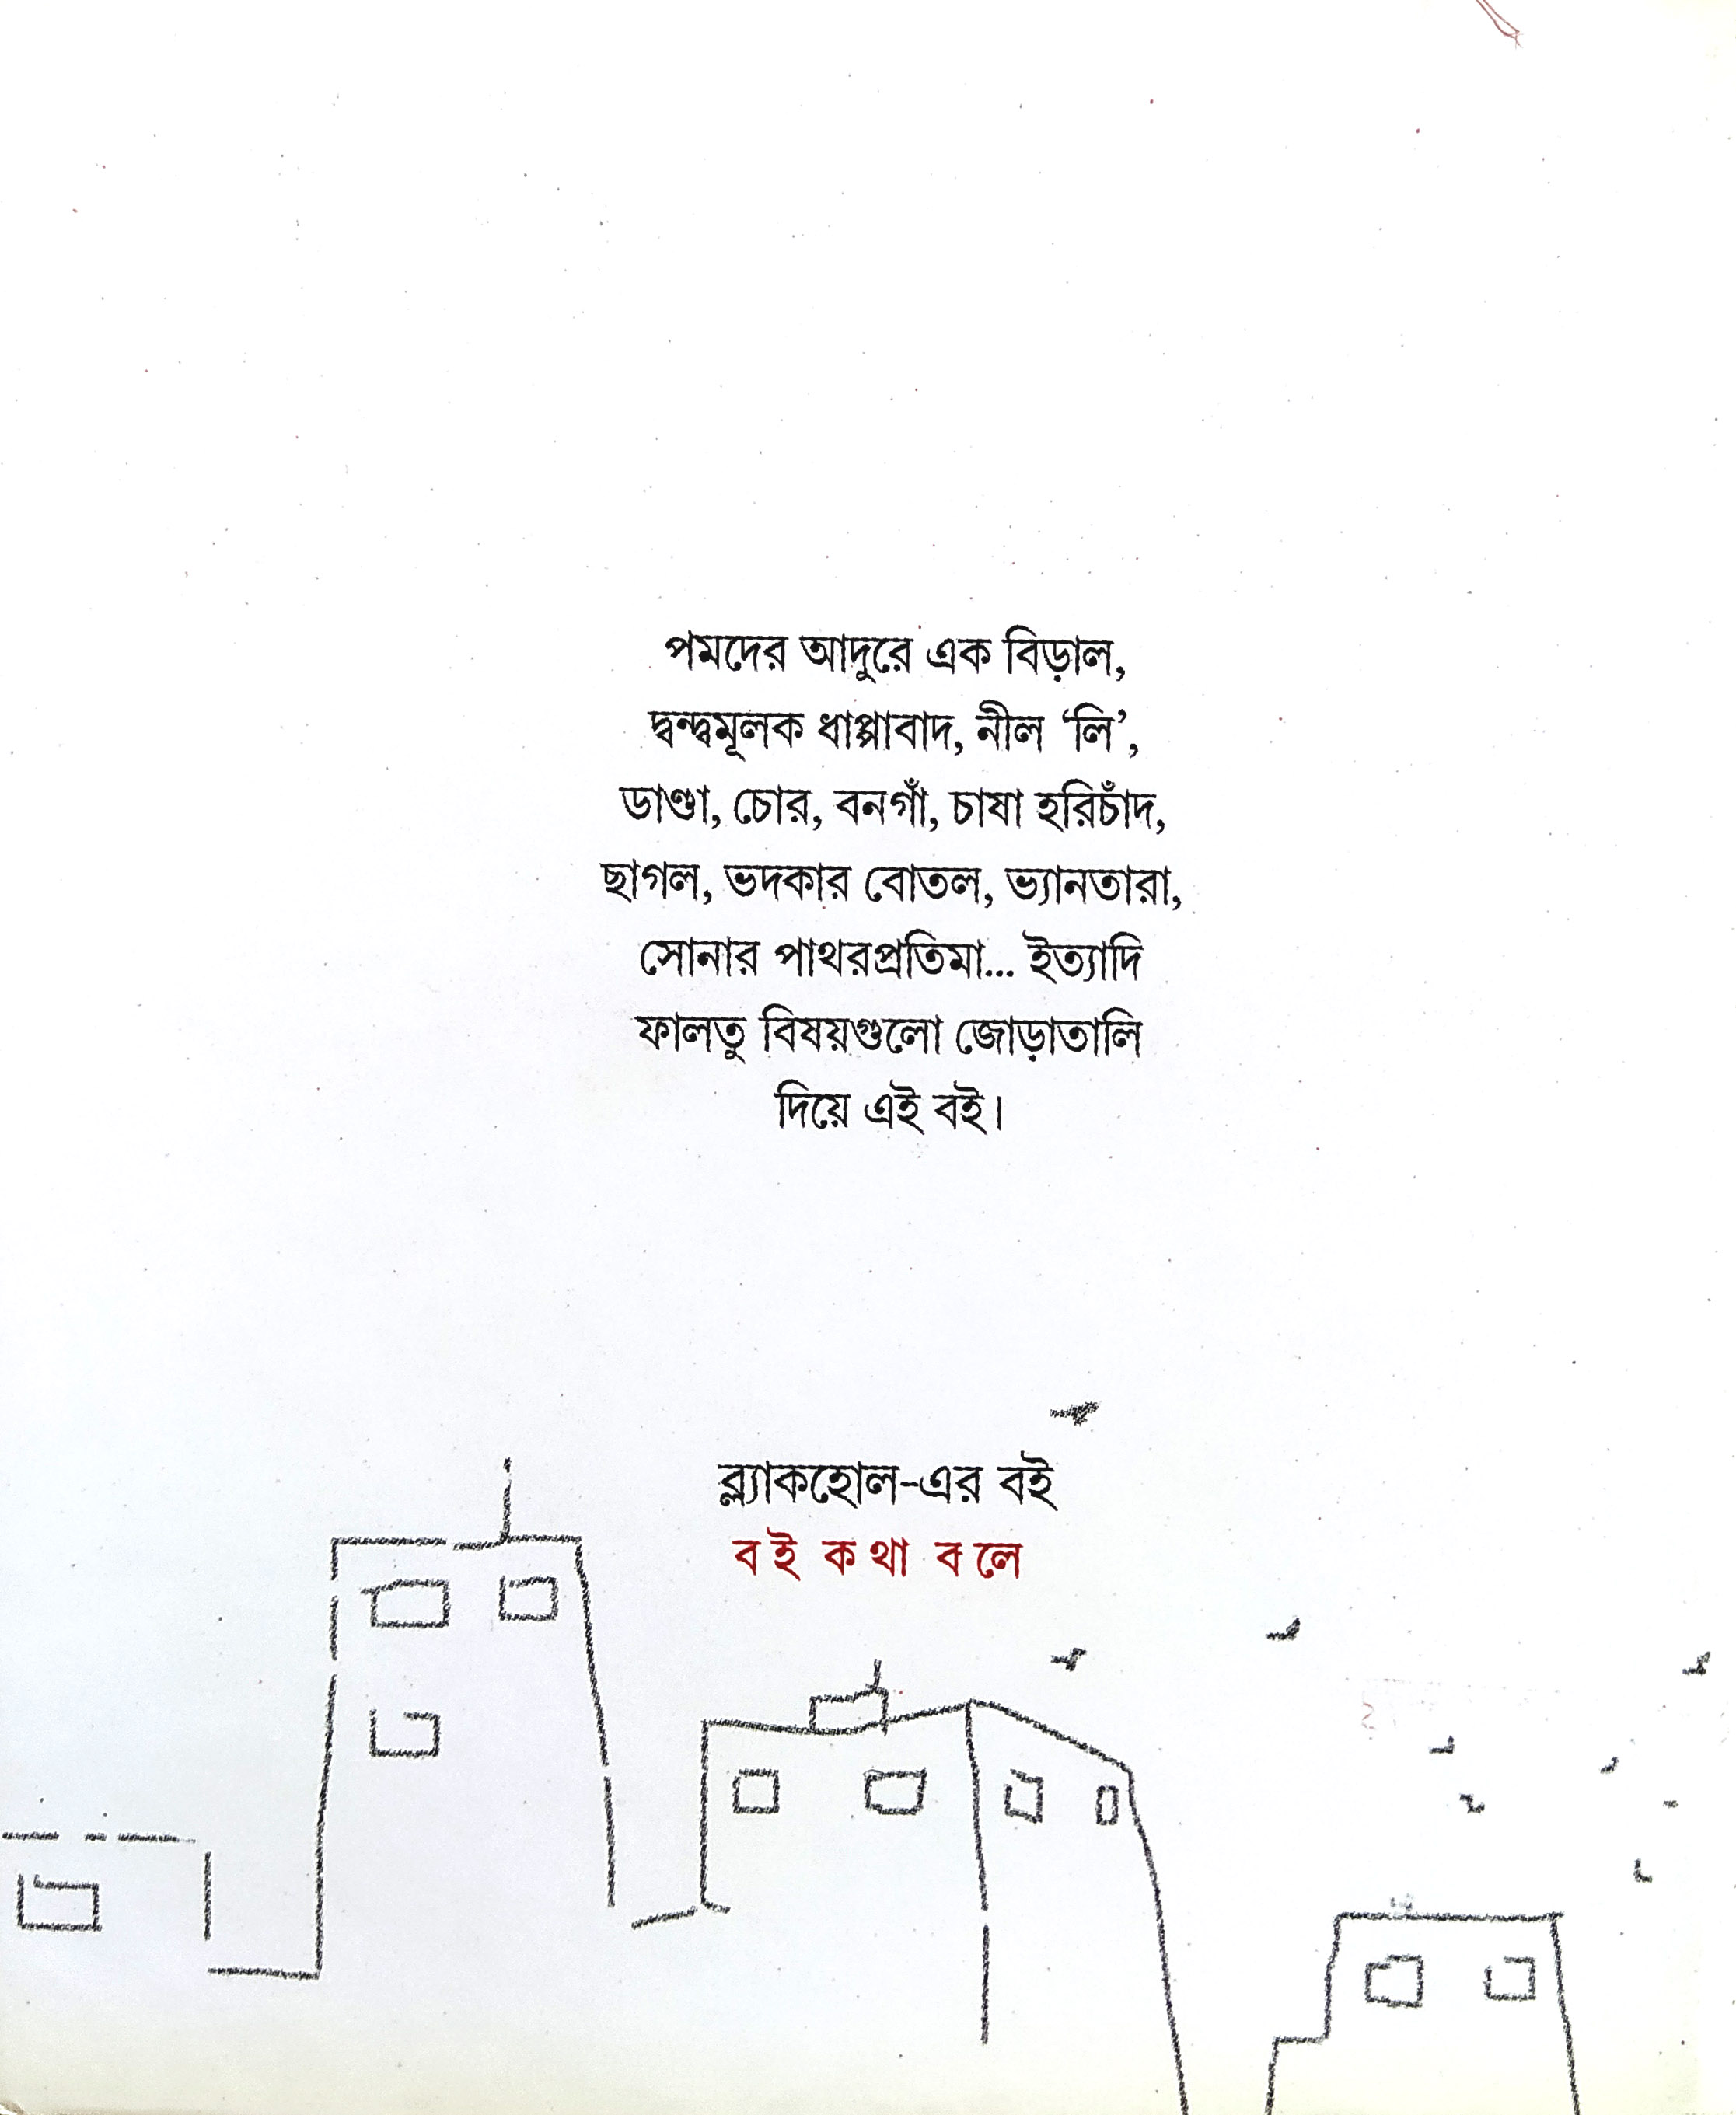 পমদের আদুরে এক বিড়াল,
দ্বন্দ্বমূলক ধাপ্পাবাদ, নীল ‘লি’,
ডাণ্ডা, চোর, বনগাঁ, চাষা হরিচাঁদ,
ছাগল, ভদকার বোতল, ভ্যানতারা,
সোনার পাথরপ্রতিমা... ইত্যাদি
ফালতু বিষয়গুলো জোড়াতালি
দিয়ে এই বই।
ব্ল্যাকহোল-এর বই
ব ই ক থা ব লে